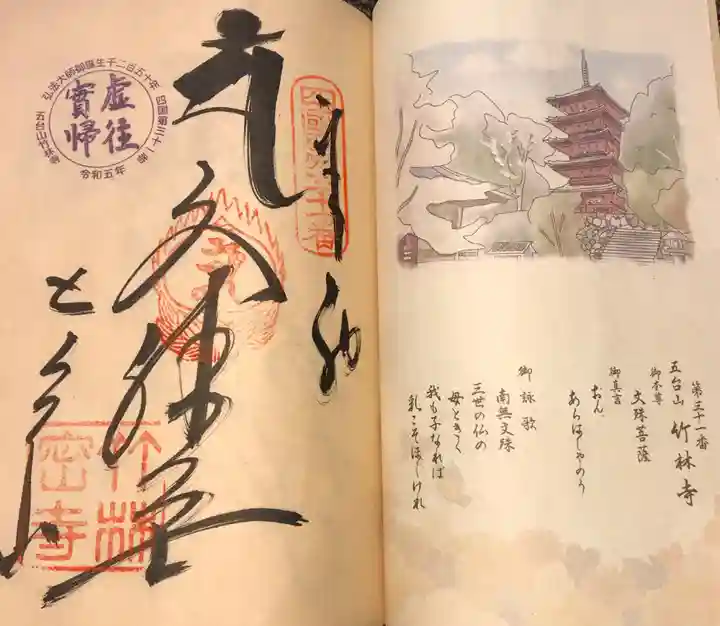 第三十一番
五台山 竹林寺
御本尊
文殊菩薩
御真言
おん
あらはしやのう
御詠歌
南無文殊
三世の仏の
母ときく
我も子なれば
乳こそほしけれ
奉拝
四国第三十一番
弘法大師御誕生千二百五十年
四国第三十一番
虚往
實帰
五台山竹林寺
令和五年
竹林
密寺